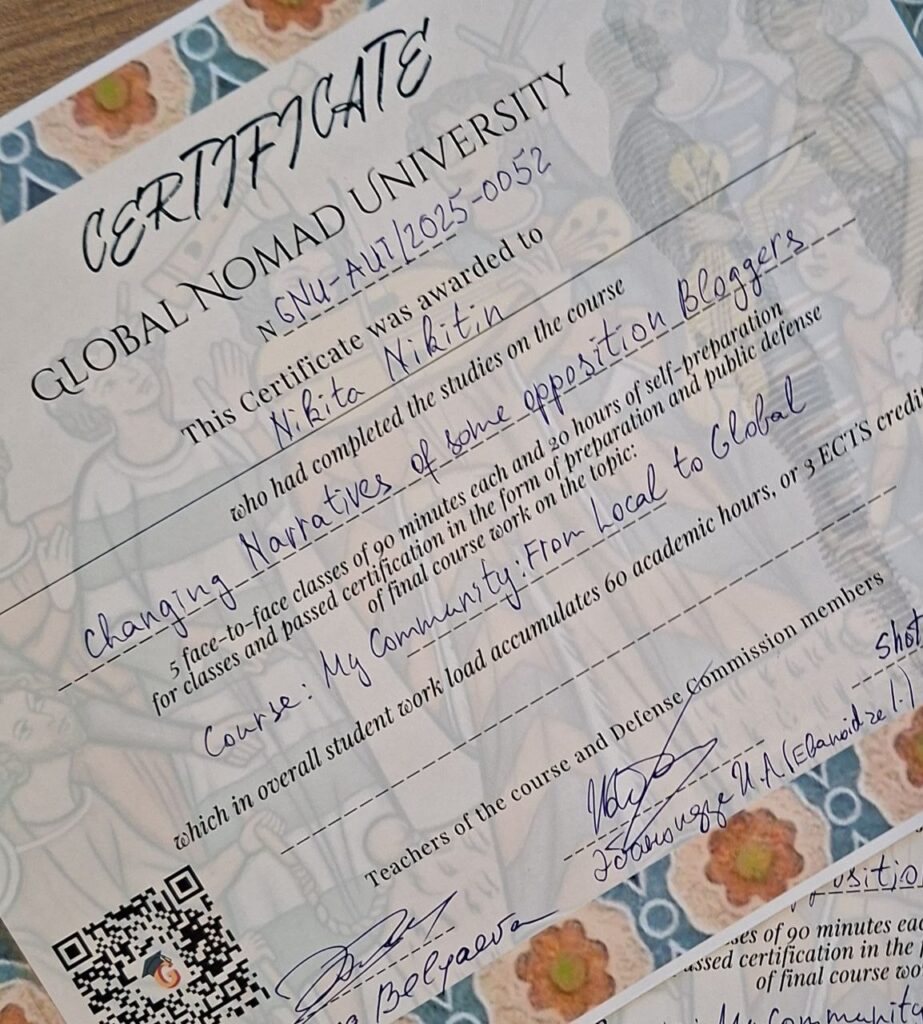 CERTIFICATE
GLOBAL NOMAD UNIVERSITY
N GNU-AUT/2025-0052
This Certificate was awarded to
Nikita Nikitin
who had completed the studies on the course
Changing Narratives of some opposition Bloggers
5 face-to-face classes of 90 minutes each and 20 hours of self-preparation
for classes and passed certification in the form of preparation and public defense
of final course work on the topic:
Course: My Community: From Local to Global
which in overall student work load accumulates 60 academic hours, or 3 ECTS credit
Teachers of the course and Defense Commission members
Shot
И.А. (Ebanoidze I.)
Belyaeva
G
ositio
ses of 90 minutes eac
assed certification in the
of final course wo
My Community